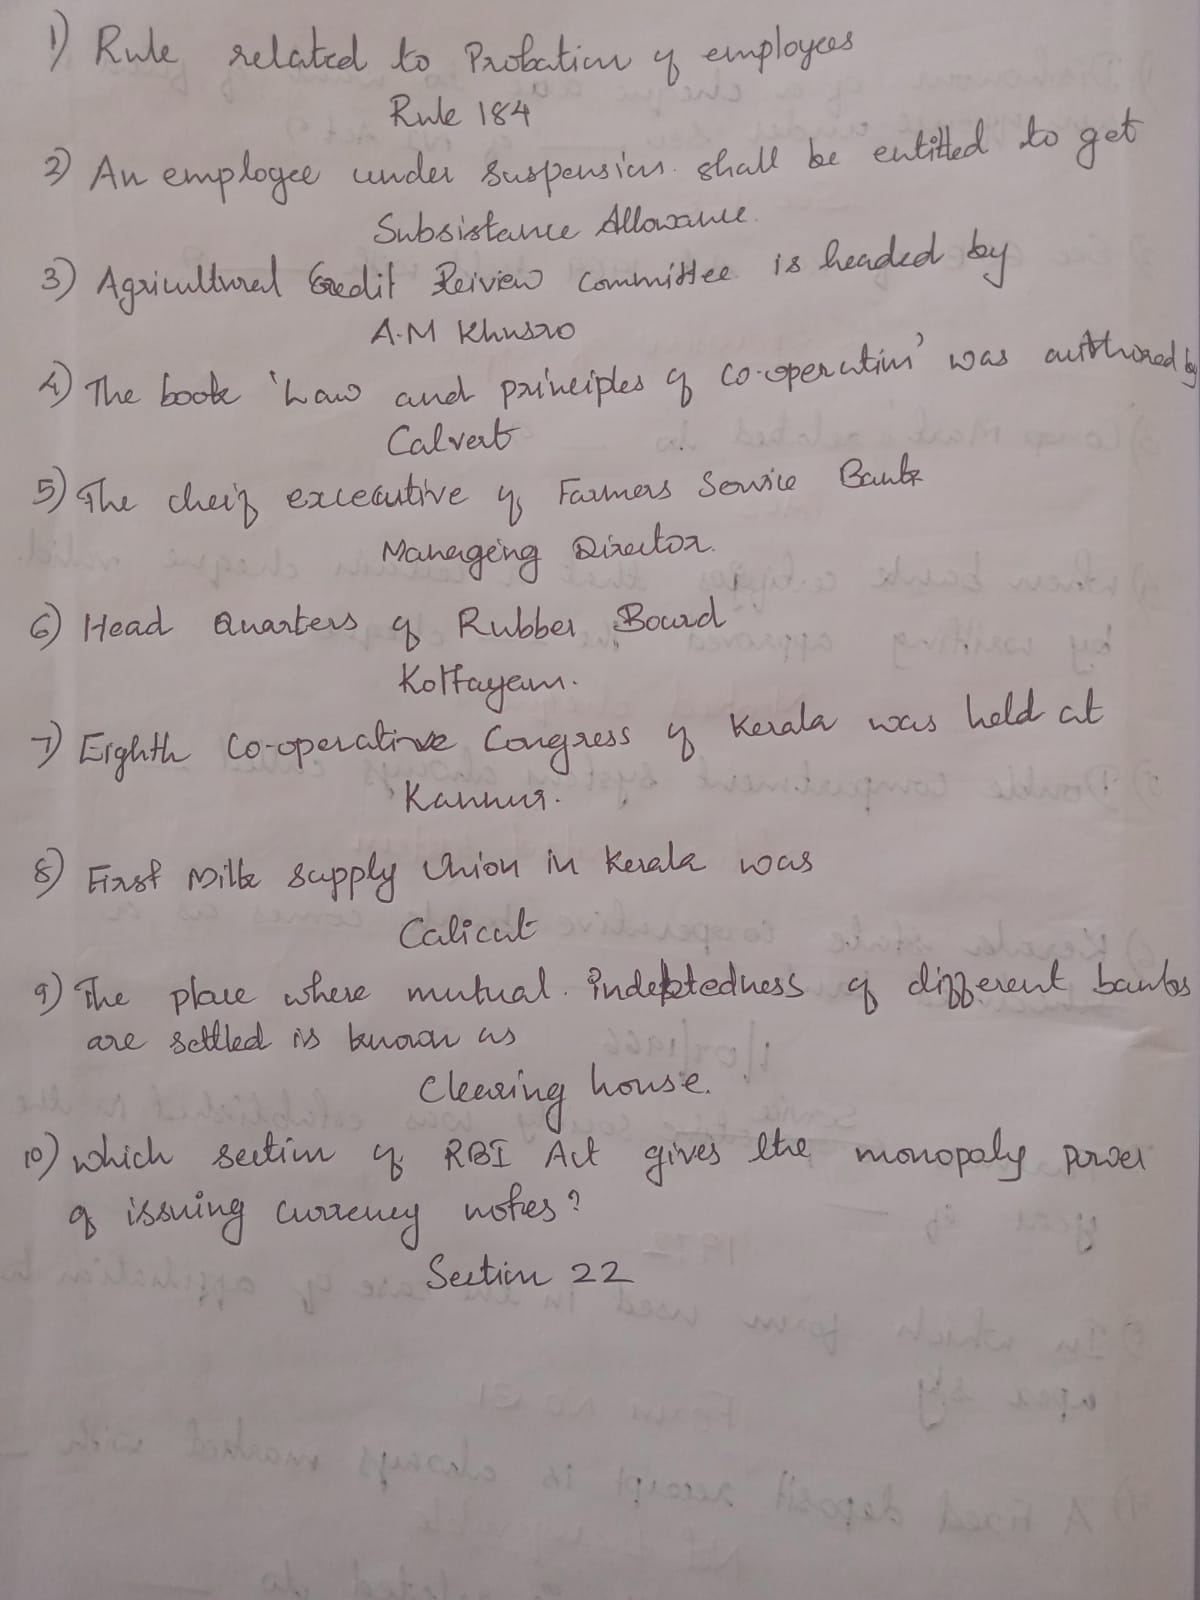 1) Rule related to Probation of employees
Rule 184
2) An employee under suspension. shall be entitled to get
Subsistance Allowance.
3) Agricultural Credit Reiview Committee is headed by
A.M Khusro
4) The book 'Law and principles of co-operation' was authored by
Calvert
5) The cheif excecutive of Farmers Service Bank
Managing Director.
6) Head Quarters of Rubber Board
Kottayam.
7) Eighth Co-operative Congress of Kerala was held at
Kannur.
8) First Milk supply Union in Kerala was
Calicut
9) The place where mutual. indebtedness of different banks
are settled is known as
Clearing house.
10) which section of RBI Act gives the monopoly power
of issuing currency notes?
Section 22